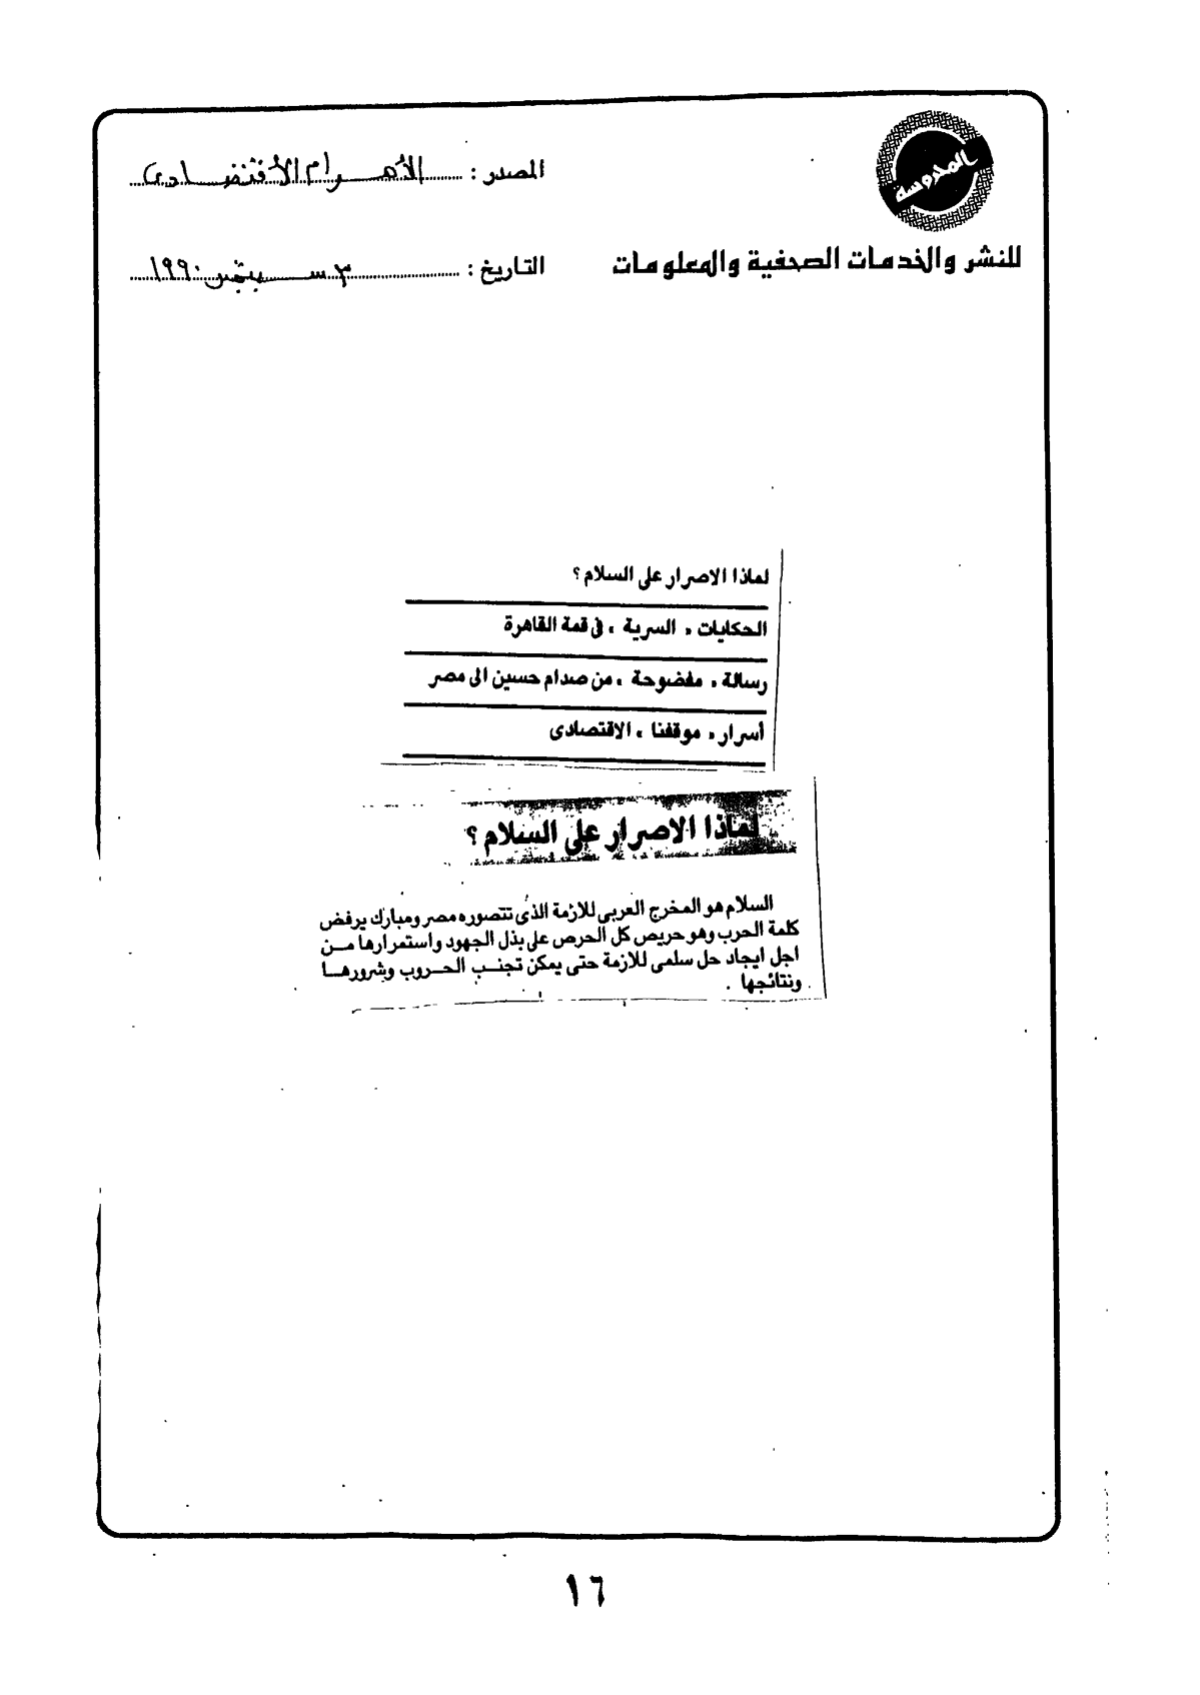 المدروسة
للنشر والخدمات الصحفية والمعلومات
المصدر : الأهرام الأقتصادى
التاريخ : ٣ سبتمبر ١٩٩٠
لماذا الاصرار على السلام ؟
الحكايات « السرية » فى قمة القاهرة
رسالة « مفضوحة » من صدام حسين الى مصر
أسرار « موقفنا » الاقتصادى
لماذا الاصرار على السلام ؟
السلام هو المخرج العربى للازمة الذى تتصوره مصر ومبارك يرفض
كلمة الحرب وهو حريص كل الحرص على بذل الجهود واستمرارها مـن
اجل ايجاد حل سلمى للازمة حتى يمكن تجنـب الحـروب وشرورهـا
ونتائجها .
١٦